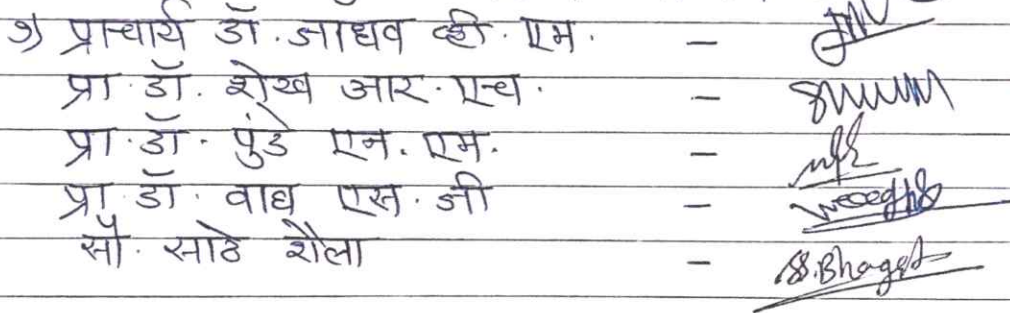 १) प्राचार्य डॉ. जाधव व्ही. एम. -
प्रा. डॉ. शेख आर. एच. -
प्रा. डॉ. पुंडे एन. एम. -
प्रा. डॉ. वाघ एस. जी -
सौ. साठे शैला - S.Bhagat